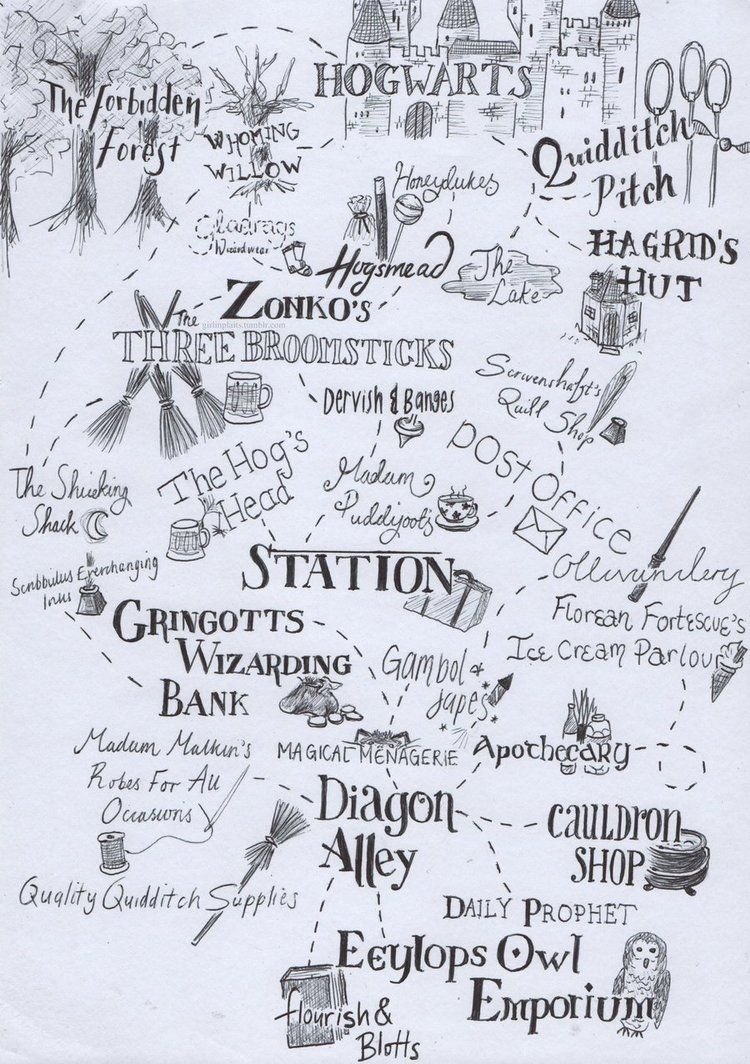 HOGWARTS
The Forbidden
Forest
WHOMING
WILLOW
Quidditch
Pitch
Honeydukes
Gladrags
Wizardwear
HAGRID'S
HUT
Hogsmead
The
Lake
ZONKO'S
girlinplaits.tumblr.com
The
THREE BROOMSTICKS
Dervish & Banges
Scrivenshaft's
Quill Shop
POST OFFICE
The Hog's
Head
Madam
Puddifoot's
The Shrieking
Shack
STATION
Scribbulus Everchanging
Inks
Ollivanders
Florean Fortescue's
Ice Cream Parlour
GRINGOTTS
WIZARDING
BANK
Gambol &
Japes
MAGICAL MENAGERIE
Apothecary
Madam Malkin's
Robes For All
Occasions
Diagon
Alley
CAULDRON
SHOP
Quality Quidditch Supplies
DAILY PROPHET
Eeylops Owl
Emporium
flourish &
Blotts